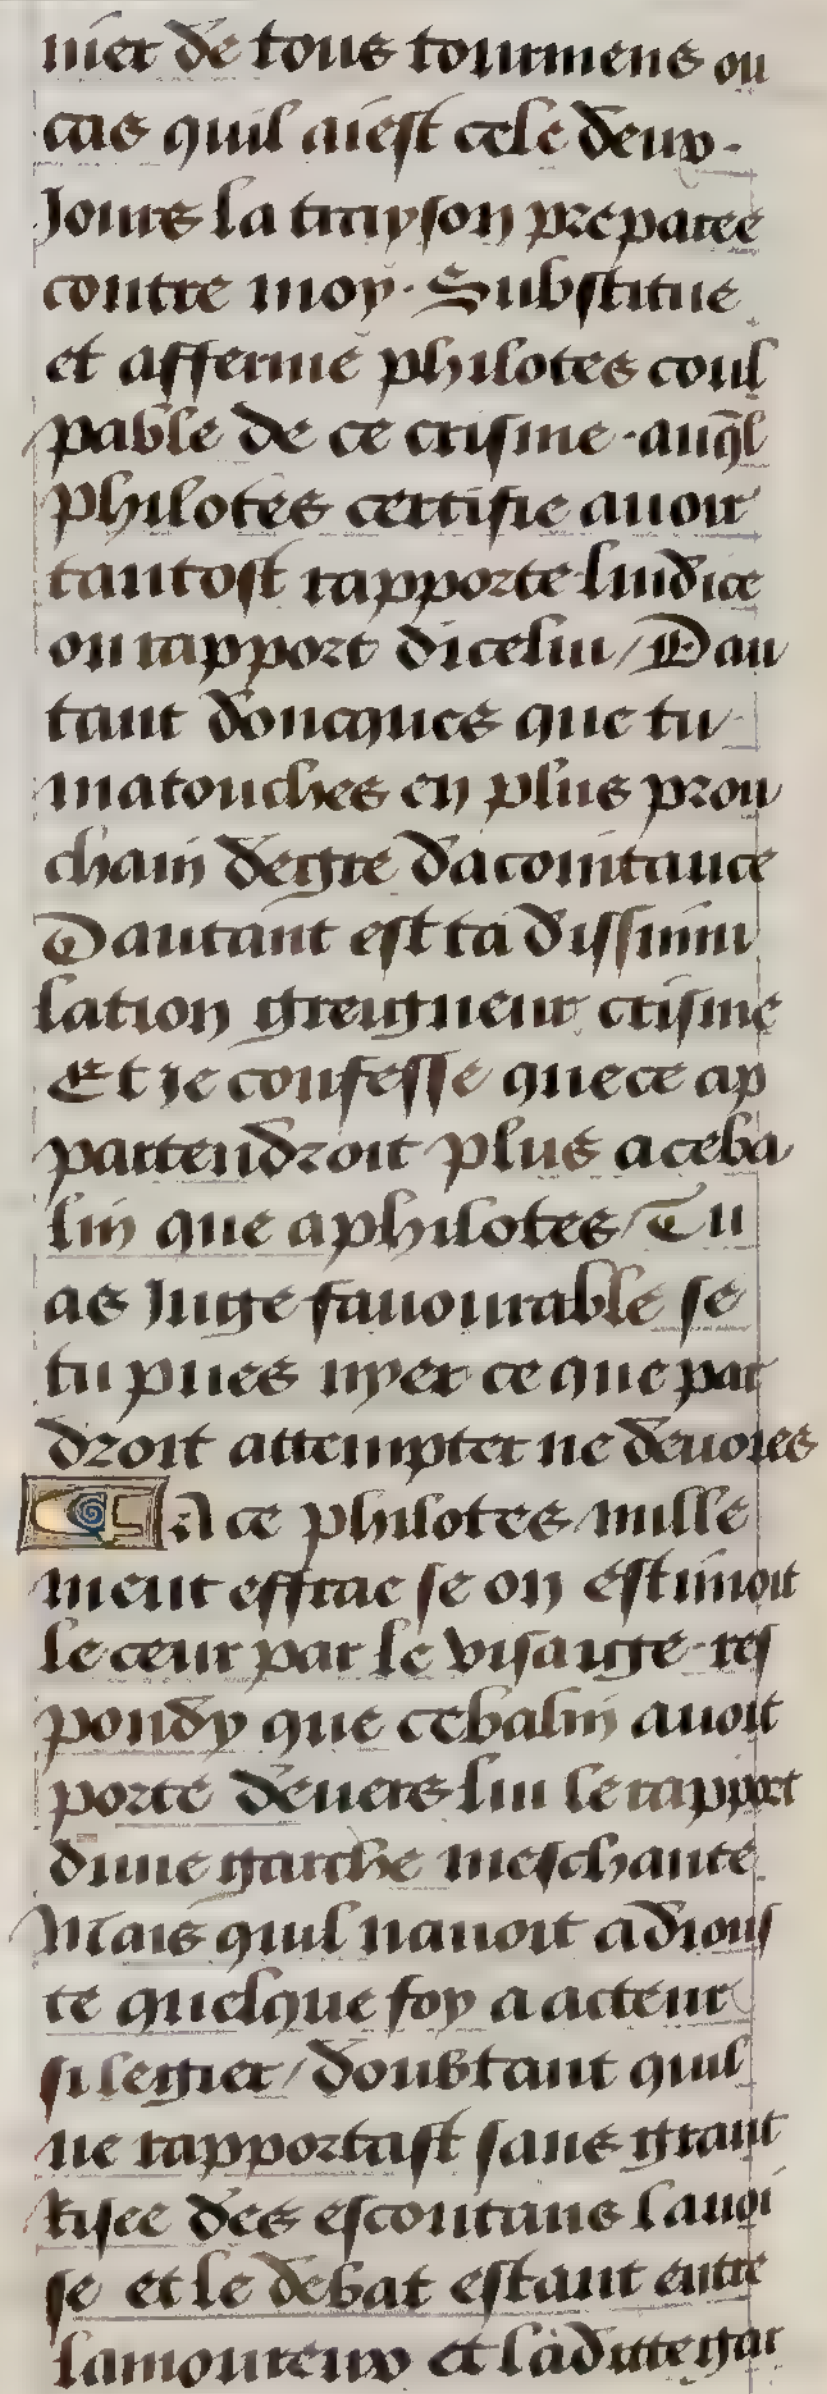 nier de tous tourmens ou
cas quil aiest cele deux
Jours la trayson preparee
contre moy. Substitue
et afferme philotes coul
pable de ce crisme. auql̄
Philotes certifie auoir
tantost rapporte lindice
ou rapport dicelui / Dau
tant doncques que tu
matouches en plus prou
chain degre dacointance
Dautant est ta dissimu
lation greigneur crisme
Et ie confesse que ce ap
partendroit plus a ceba
lin que a philotes / Tu
as Juge fauourable se
tu pues nyer ce que par
droit attempter ne deuoies
A ce philotes nulle
ment effrae se on estimoit
le cœur par le visaige. res
pondy que cebalin auoit
porte deuers lui le rapport
dune garche meschante
Mais quil nauoit adious
te quelque foy a acteur
si legier / doubtant quil
ne rapportast sans grant
risee des escoutans lauoi
se et le debat estant entre
lamoureux et laditte gar